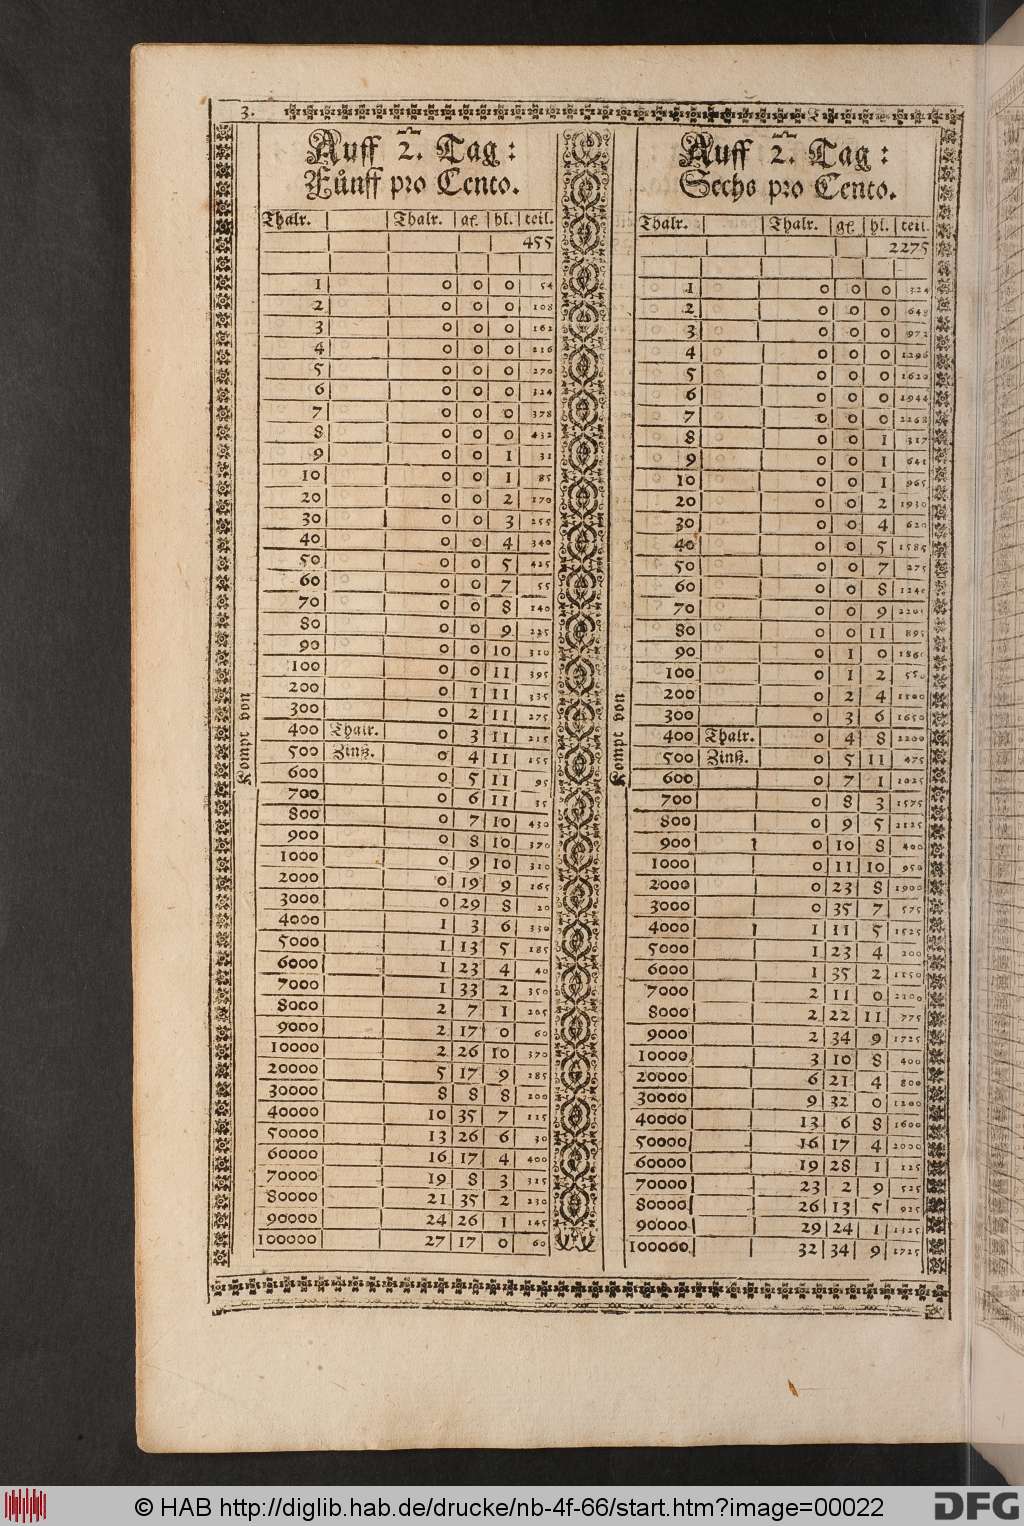 3.
Auff 2. Tag:
Fůnff pro Cento.
Thalr. Thalr. gr. hl. teil.
455
1 0 0 0 54
2 0 0 0 108
3 0 0 0 162
4 0 0 0 216
5 0 0 0 270
6 0 0 0 324
7 0 0 0 378
8 0 0 0 432
9 0 0 1 31
10 0 0 1 85
20 0 0 2 170
30 0 0 3 255
40 0 0 4 340
50 0 0 5 425
60 0 0 7 55
70 0 0 8 140
80 0 0 9 225
90 0 0 10 310
100 0 0 11 395
200 0 1 11 335
300 0 2 11 275
400 Thalr. 0 3 11 215
500 Zinß. 0 4 11 155
600 0 5 11 95
700 0 6 11 35
800 0 7 10 430
900 0 8 10 370
1000 0 9 10 310
2000 0 19 9 165
3000 0 29 8 20
4000 1 3 6 330
5000 1 13 5 185
6000 1 23 4 40
7000 1 33 2 350
8000 2 7 1 205
9000 2 17 0 60
10000 2 26 10 370
20000 5 17 9 285
30000 8 8 8 200
40000 10 35 7 115
50000 13 26 6 30
60000 16 17 4 400
70000 19 8 3 315
80000 21 35 2 230
90000 24 26 1 145
100000 27 17 0 60
Kompt von
Auff 2. Tag:
Sechs pro Cento.
Thalr. Thalr. gr. hl. teil.
2275
1 0 0 0 324
2 0 0 0 648
3 0 0 0 972
4 0 0 0 1296
5 0 0 0 1620
6 0 0 0 1944
7 0 0 0 2268
8 0 0 1 317
9 0 0 1 641
10 0 0 1 965
20 0 0 2 1930
30 0 0 4 620
40 0 0 5 1585
50 0 0 7 275
60 0 0 8 1240
70 0 0 9 2205
80 0 0 11 895
90 0 1 0 1860
100 0 1 2 550
200 0 2 4 1100
300 0 3 6 1650
400 Thalr. 0 4 8 2200
500 Zinß. 0 5 11 475
600 0 7 1 1025
700 0 8 3 1575
800 0 9 5 2125
900 0 10 8 400
1000 0 11 10 950
2000 0 23 8 1900
3000 0 35 7 575
4000 1 11 5 1525
5000 1 23 4 200
6000 1 35 2 1150
7000 2 11 0 2100
8000 2 22 11 775
9000 2 34 9 1725
10000 3 10 8 400
20000 6 21 4 800
30000 9 32 0 1200
40000 13 6 8 1600
50000 16 17 4 2000
60000 19 28 1 125
70000 23 2 9 525
80000 26 13 5 925
90000 29 24 1 1325
100000 32 34 9 1725
Kompt von
© HAB http://diglib.hab.de/drucke/nb-4f-66/start.htm?image=00022
DFG